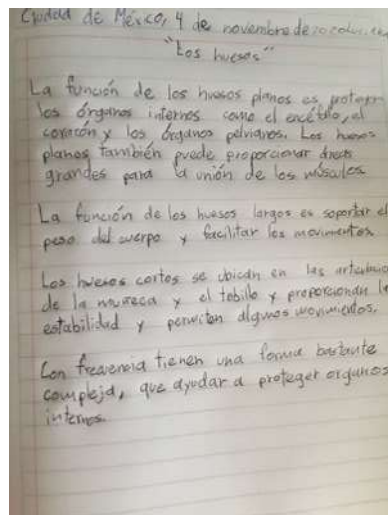 Ciudad de México, 4 de noviembre de
"Los huesos"
La función de los huesos planos es proteger
los órganos internos como el encéfalo, el
corazón y los órganos pelvianos. Los huesos
planos también puede proporcionar áreas
grandes para la unión de los músculos
La función de los huesos largos es soportar el
peso del cuerpo y facilitar los movimientos
Los huesos cortos se ubican en las
de la muñeca y el tobillo y proporcionan
estabilidad y permiten algunos movimientos.
Con frecuencia tienen una forma bastante
compleja, que ayudar a proteger organos
internos.